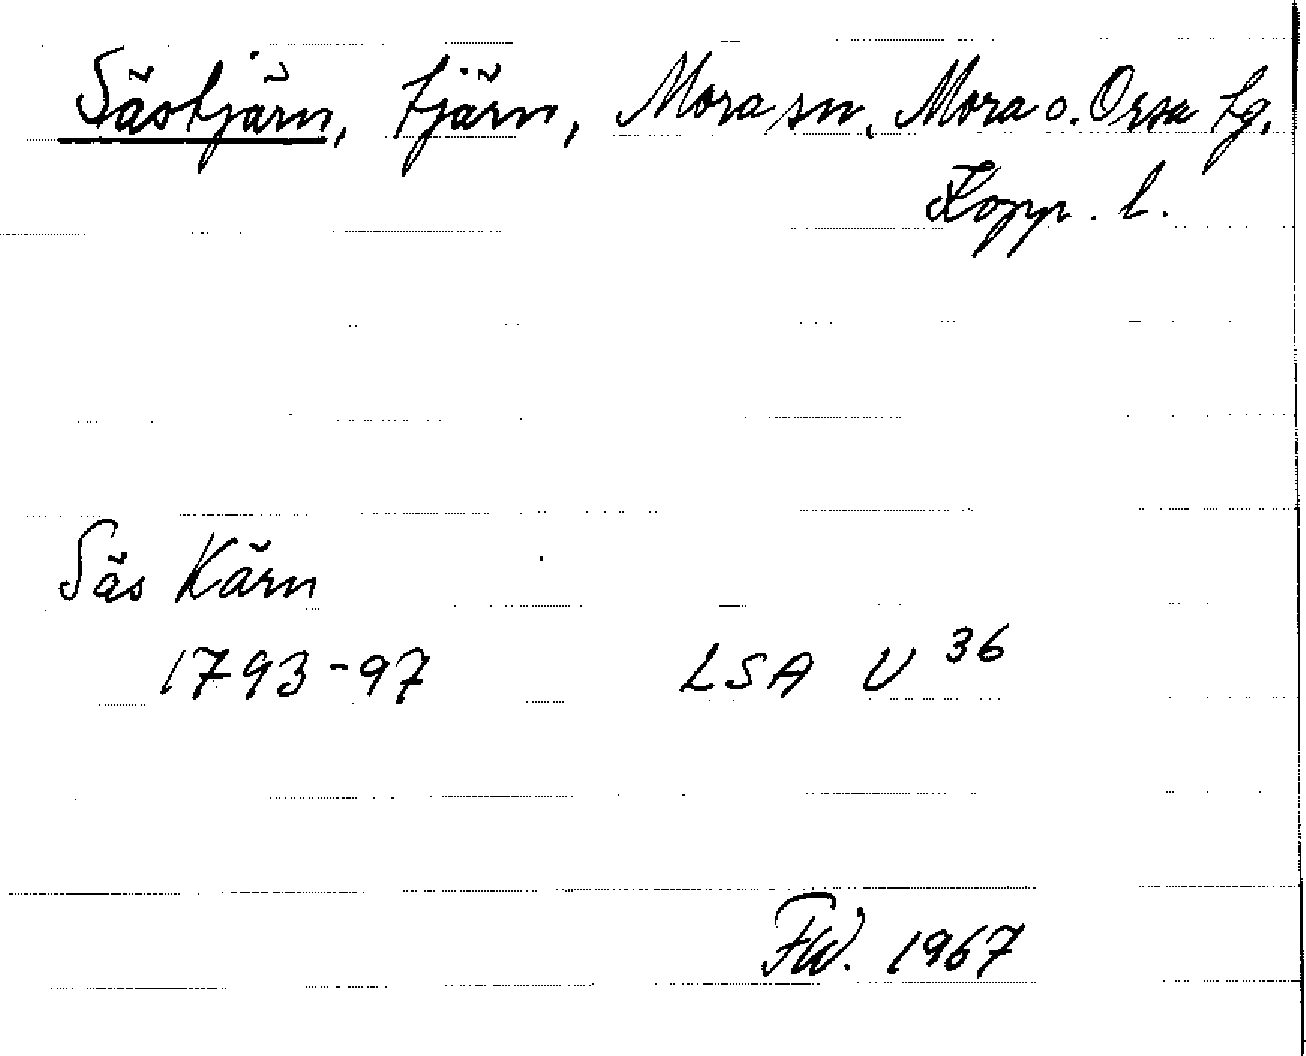 Sästjärn, tjärn, Mora sn, Mora o. Orsa tg,
Kopp. l.
Säs Kärn
1793-97 LSA U 36
FW. 1967